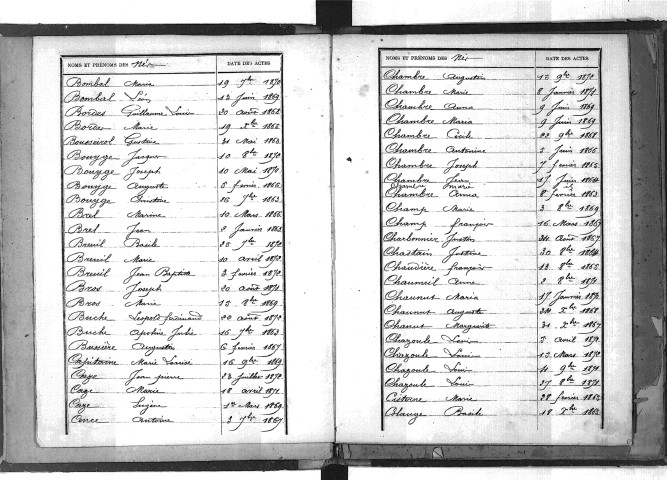 NOMS ET PRÉNOMS DES Nés DATE DES ACTES
Bombal Marie 19 7bre 1870
Bombal Léon 12 Juin 1869
Bordes Guillaume Louis 20 août 1862
Bordes Marie 19 Xbre 1866
Bousseirol Gustave 31 Mai 1863
Bouyge Jacques 10 8bre 1870
Bouyge Joseph 10 Mai 1870
Bouyge Auguste 5 février 1866
Bouyge 16 7bre 1863
Brel Marine 10 Mars 1866
Brel Jean 2 Janvier 1862
Breuil Basile 25 7bre 1872
Breuil Marie 10 avril 1872
Breuil Jean Baptiste 2 février 1872
Bros Joseph 20 août 1871
Bros Marie 12 8bre 1869
Buche Léopold ferdinand 22 août 1872
Buche Julie 16 7bre 1863
Bussière Augustin 6 février 1867
Capitaine Marie Louise 16 9bre 1869
Caze Jean pierre 23 Juillet 1872
Caze Marie 18 avril 1871
Caze Eugène 1er Mars 1869
Cence Antoine 3 7bre 1867
NOMS ET PRÉNOMS DES Nés DATE DES ACTES
Chambre Augustin 12 9bre 1872
Chambre Marie 8 Janvier 1871
Chambre Anna 9 Juin 1869
Chambre Maria 9 Juin 1869
Chambre Cécile 22 9bre 1868
Chambre Antonine 2 Juin 1866
Chambre Joseph 7 février 1865
Chambre Jean 17 Juin 1864
Chambre Marie
Chambre Anna 8 février 1863
Champ Marie 3 8bre 1869
Champ françois 16 Mars 1867
Charbonnier Justin 31 août 1867
Chastain Justine 30 8bre 1864
Chaudière françois 13 8bre 1865
Chaumeil Anne 2 8bre 1871
Chaunut Maria 17 Janvier 1872
Chaunut Auguste 31 Xbre 1868
Chanut Marguerite 31 Xbre 1867
Chazoule Louis 2 avril 1872
Chazoule Louise 12 Mars 1870
Chazoule Louis 4 9bre 1871
Chazoule Louis 27 8bre 1871
Cisterne Marie 28 février 1863
Colauge Basile 18 Xbre 1863